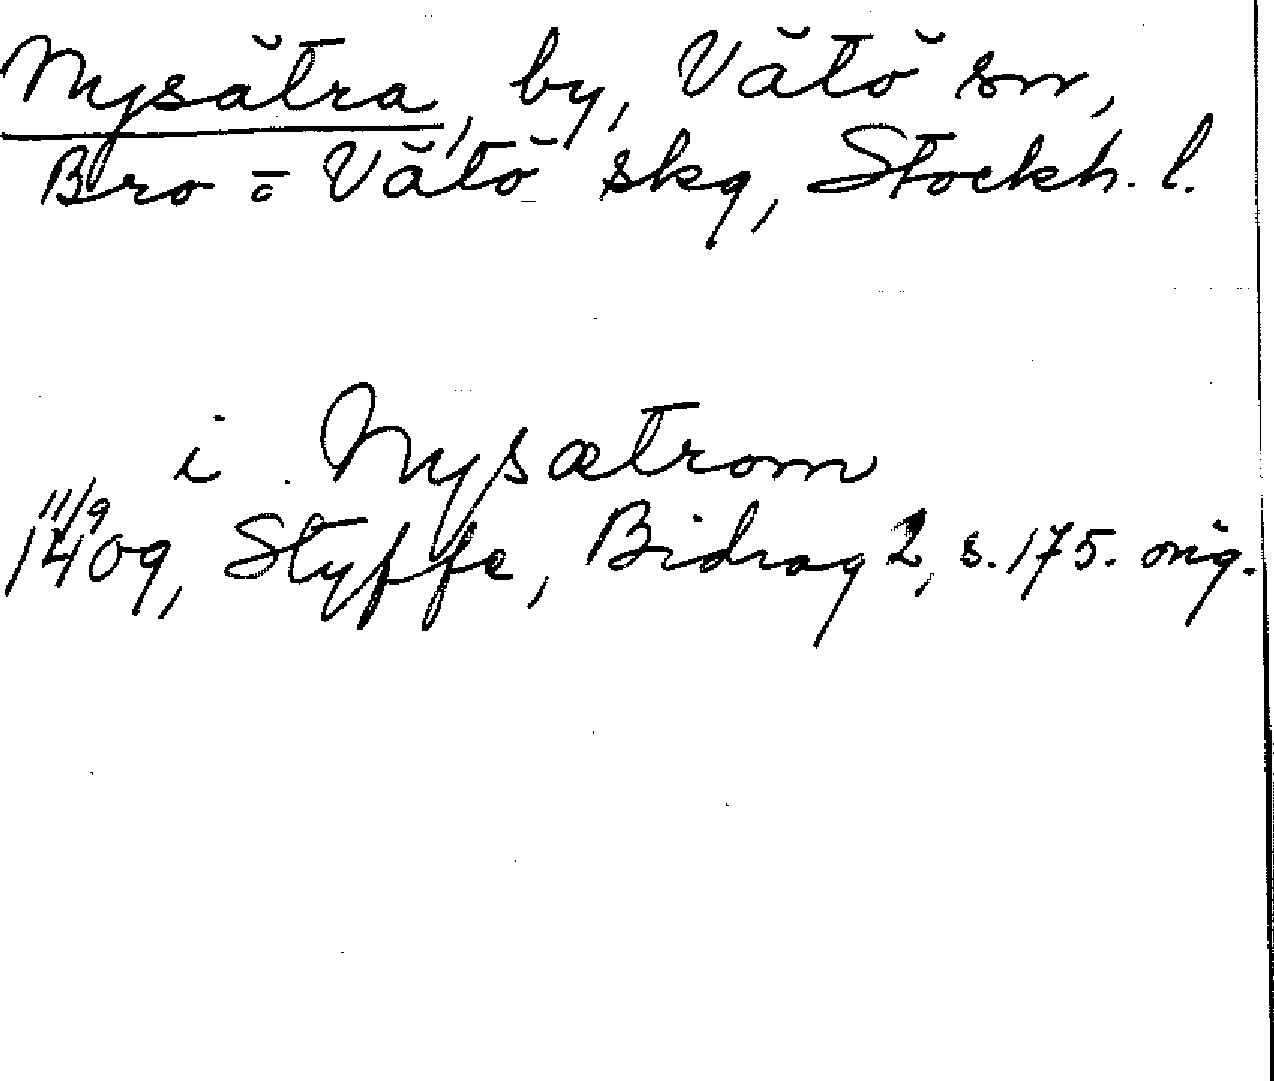 Nysätra, by, Vätö sn,
Bro o Vätö skg, Stockh. l.
i Nysætrom
11/9
1409, Styffe, Bidrag 2, s. 175. orig.